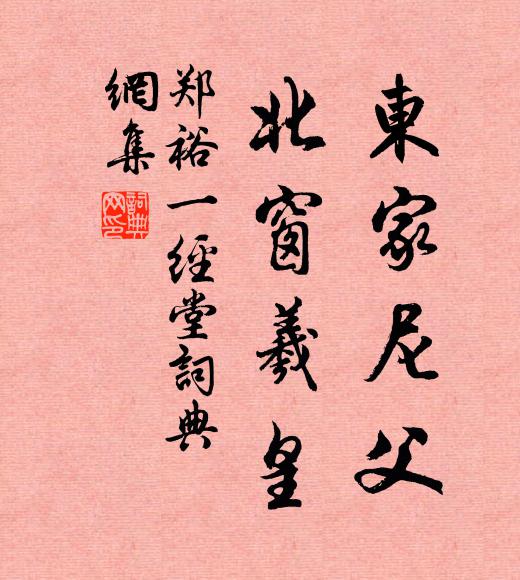 東家尼父
北窗羲皇
郑裕一經堂詞典
網集
詞典
网印